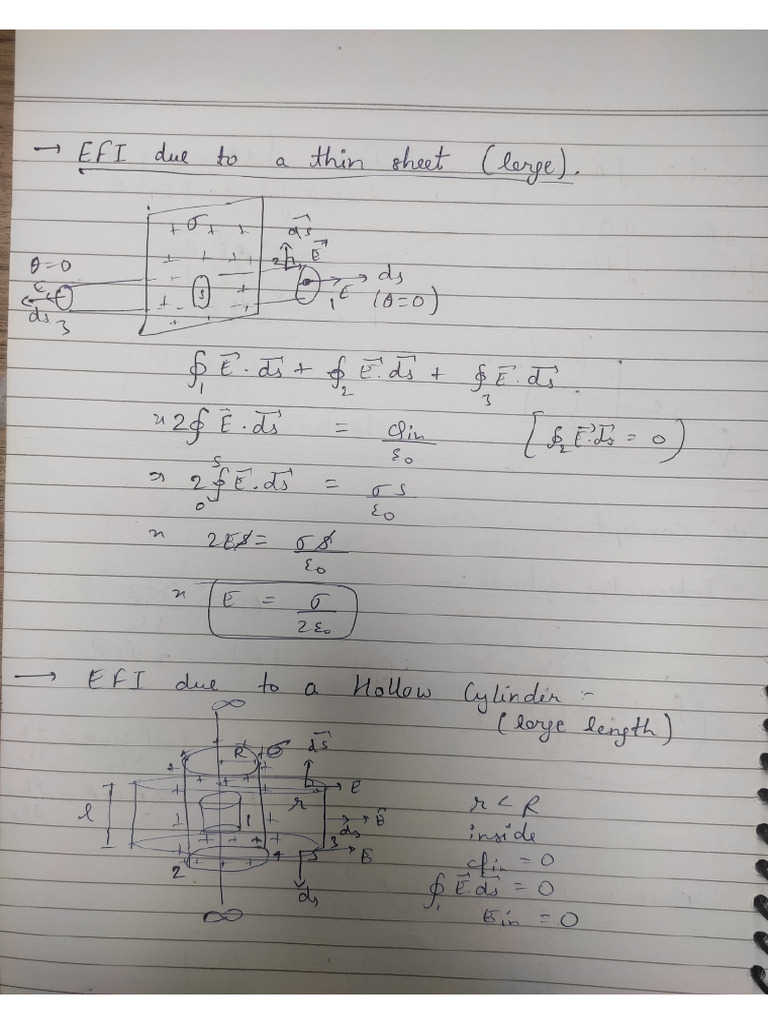 → EFI due to a thin sheet (large).
+ σ + +
+ + + +
θ=0
E
ds
3
S
2
ds→
E→
1 E
ds
(θ=0)
∮₁ E→ · ds→ + ∮₂ E→ · ds→ + ∮₃ E→ · ds→
2∮ E→ · ds→ = qin/ε0 [∮₂ E→ · ds→ = 0)
⇒ 2 ∮₀ˢ E→ · ds→ = σs/ε0
2ES = σS/ε0
E = σ/2ε0
→ EFI due to a Hollow Cylinder :-
(large length)
∞
R σ ds→
E
l r
1
ds E→
3
2 4 E→
ds
∞
r < R
inside
qin = 0
∮₁ E→ · ds→ = 0
Ein = 0